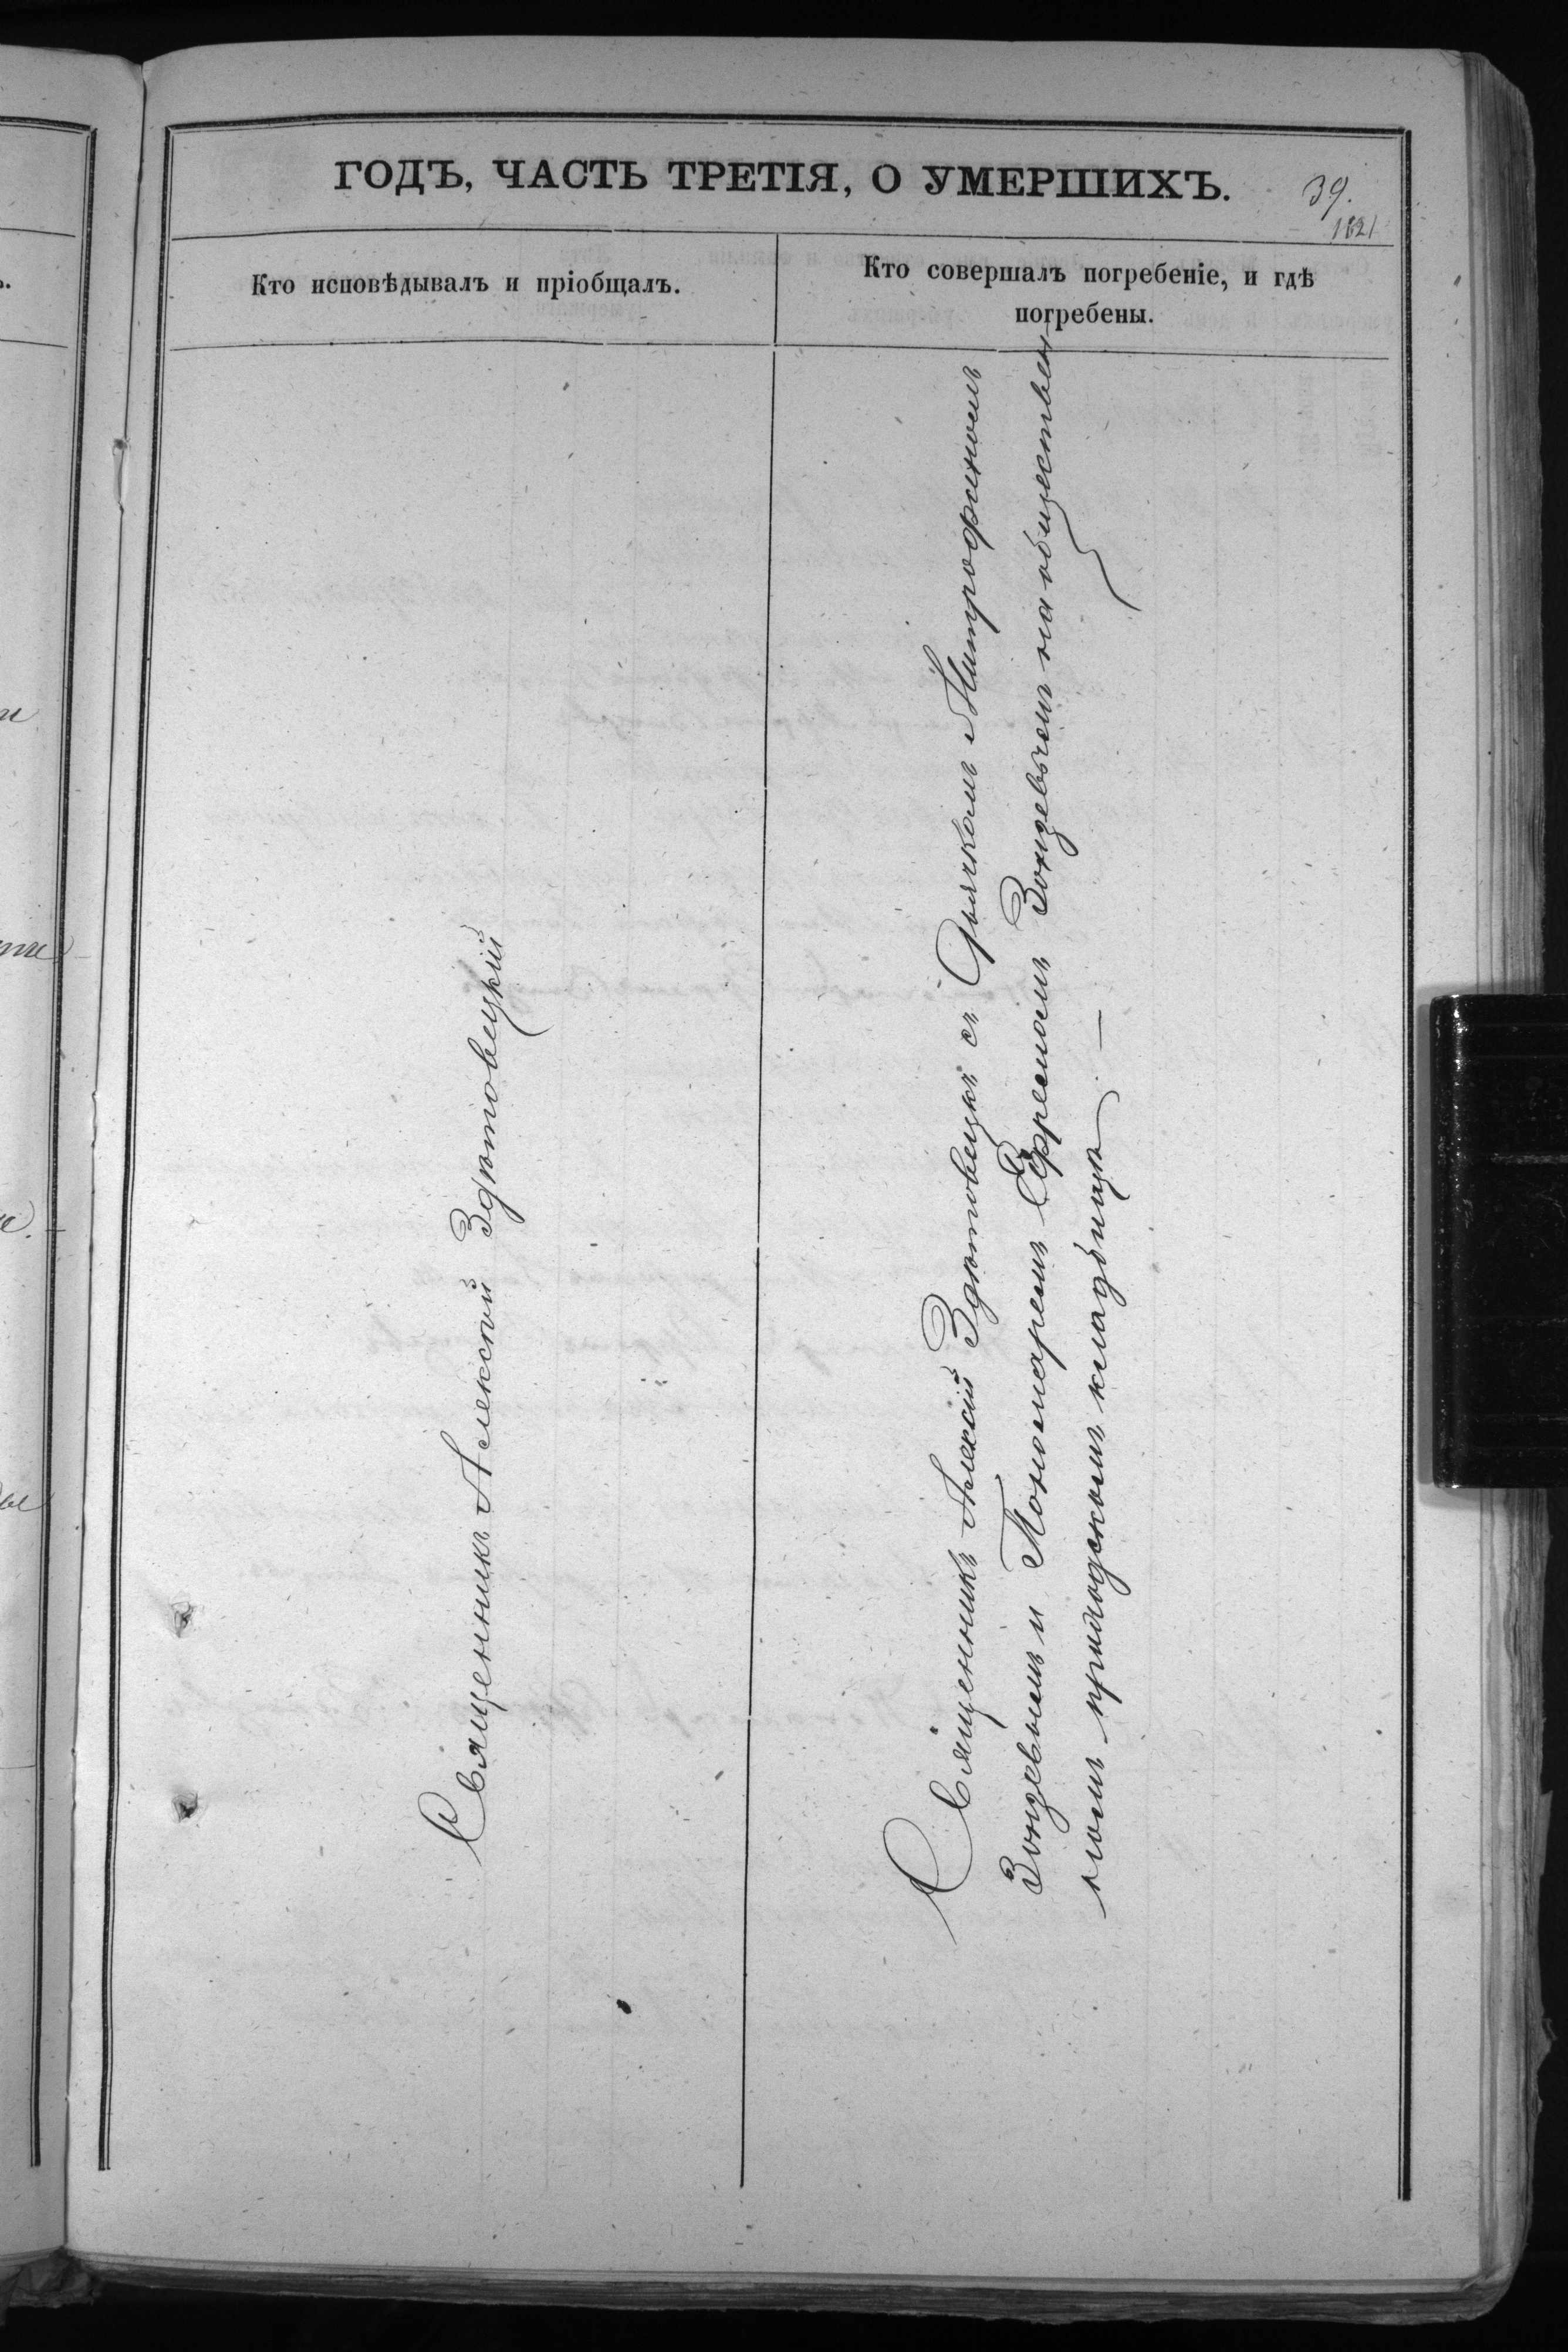 ГОДЪ, ЧАСТЬ ТРЕТІЯ, О УМЕРШИХЪ.
39.
1821
Кто исповѣдывалъ и пріобщалъ.
Кто совершалъ погребеніе, и гдѣ
погребены.
Священникъ Алексій Здѣтовецкій
Священникъ Алексій Здѣтовецкі съ Дьячкомъ Митрофаномъ
Зонцевымъ и Пономаремъ Ефремомъ Зонцевымъ на обществен
номъ приходскомъ кладбищѣ. —
ти